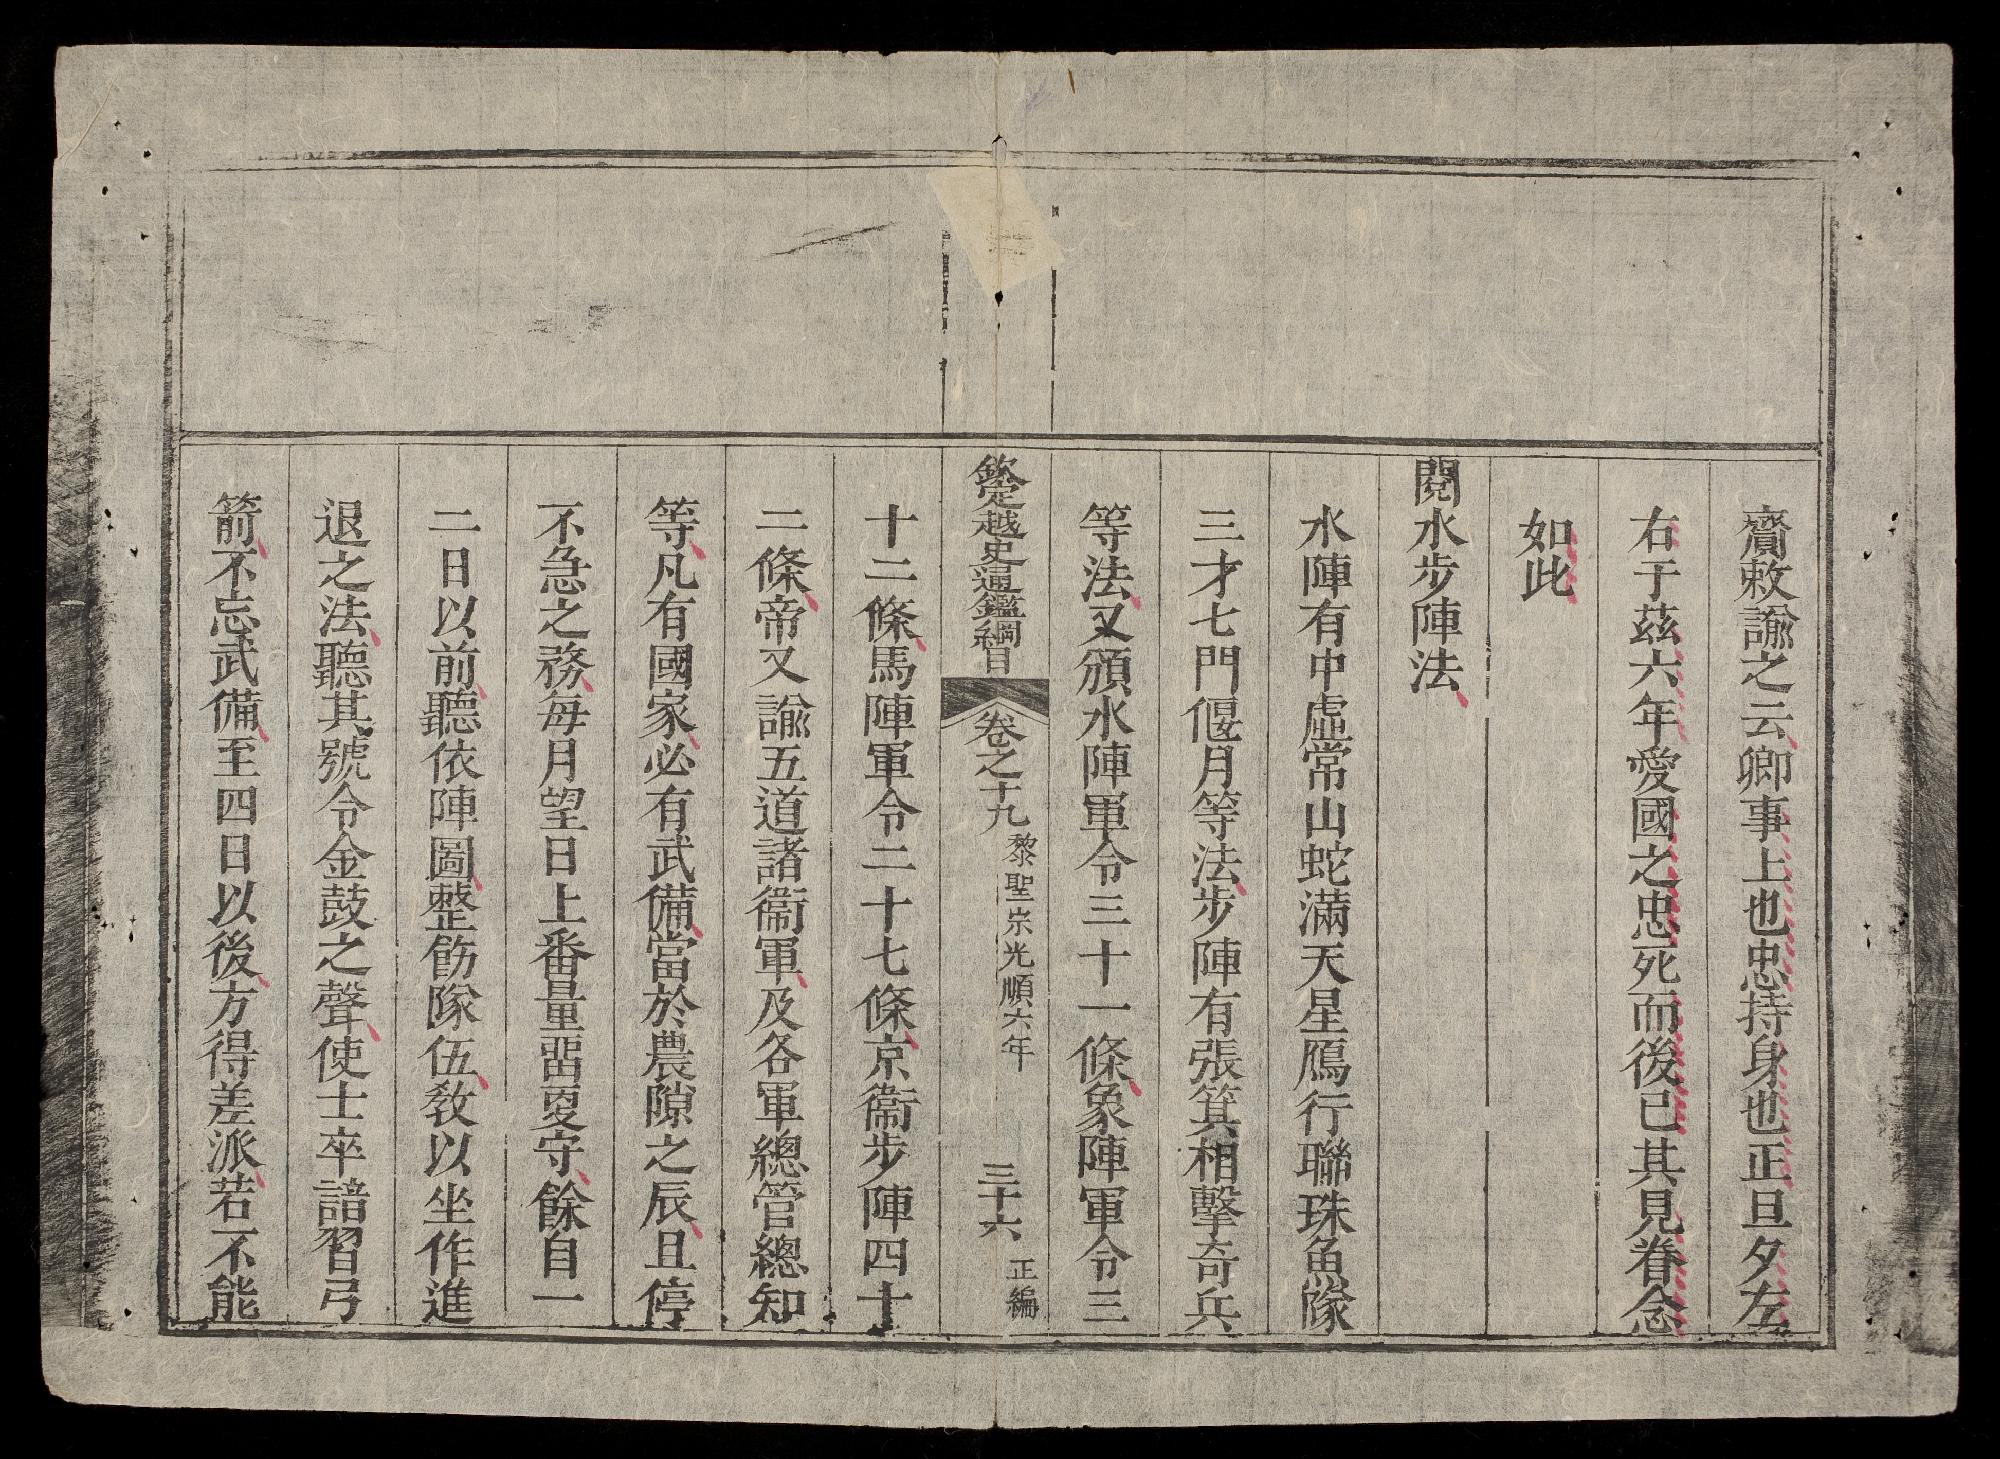 齎敕諭之云卿事上也忠持身也正旦夕左
右于茲六年愛國之忠死而後已其見眷念
如此
閱水步陣法
水陣有中虛常山蛇滿天星鴈行聯珠魚隊
三才七門偃月等法步陣有張箕相擊奇兵
等法又頒水陣軍令三十一條象陣軍令三
欽定越史通鑑綱目
卷之十九
黎聖宗光順六年
三十六
正編
十二條馬陣軍令二十七條京衞步陣四十
二條帝又諭五道諸衞軍及各軍總管總知
等凡有國家必有武備當於農隙之辰且停
不急之務每月望日上番量畱更守餘自一
二日以前聽依陣圖整飭隊伍敎以坐作進
退之法聽其號令金鼓之聲使士卒諳習弓
箭不忘武備至四日以後方得差派若不能